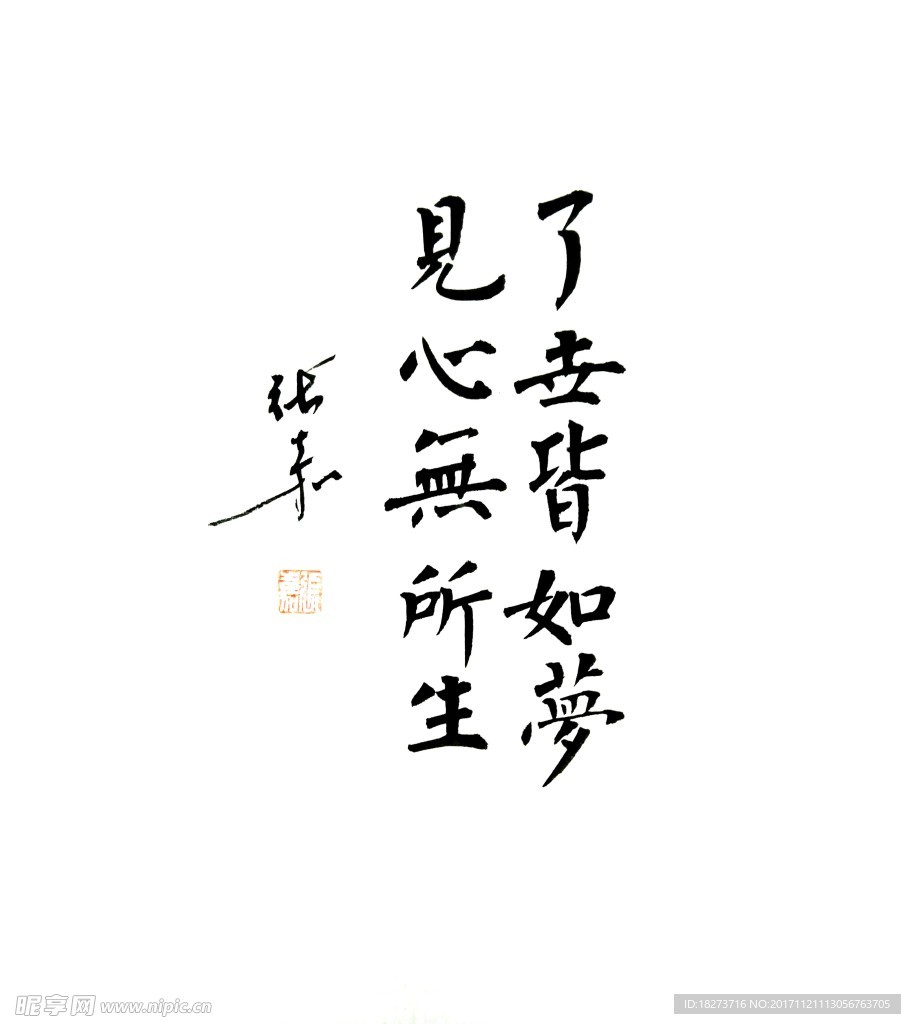 了世皆如夢
見心無所生
張嘉
張嘉
昵享网 www.nipic.cn
ID:18273716 NO:20171121113056763705